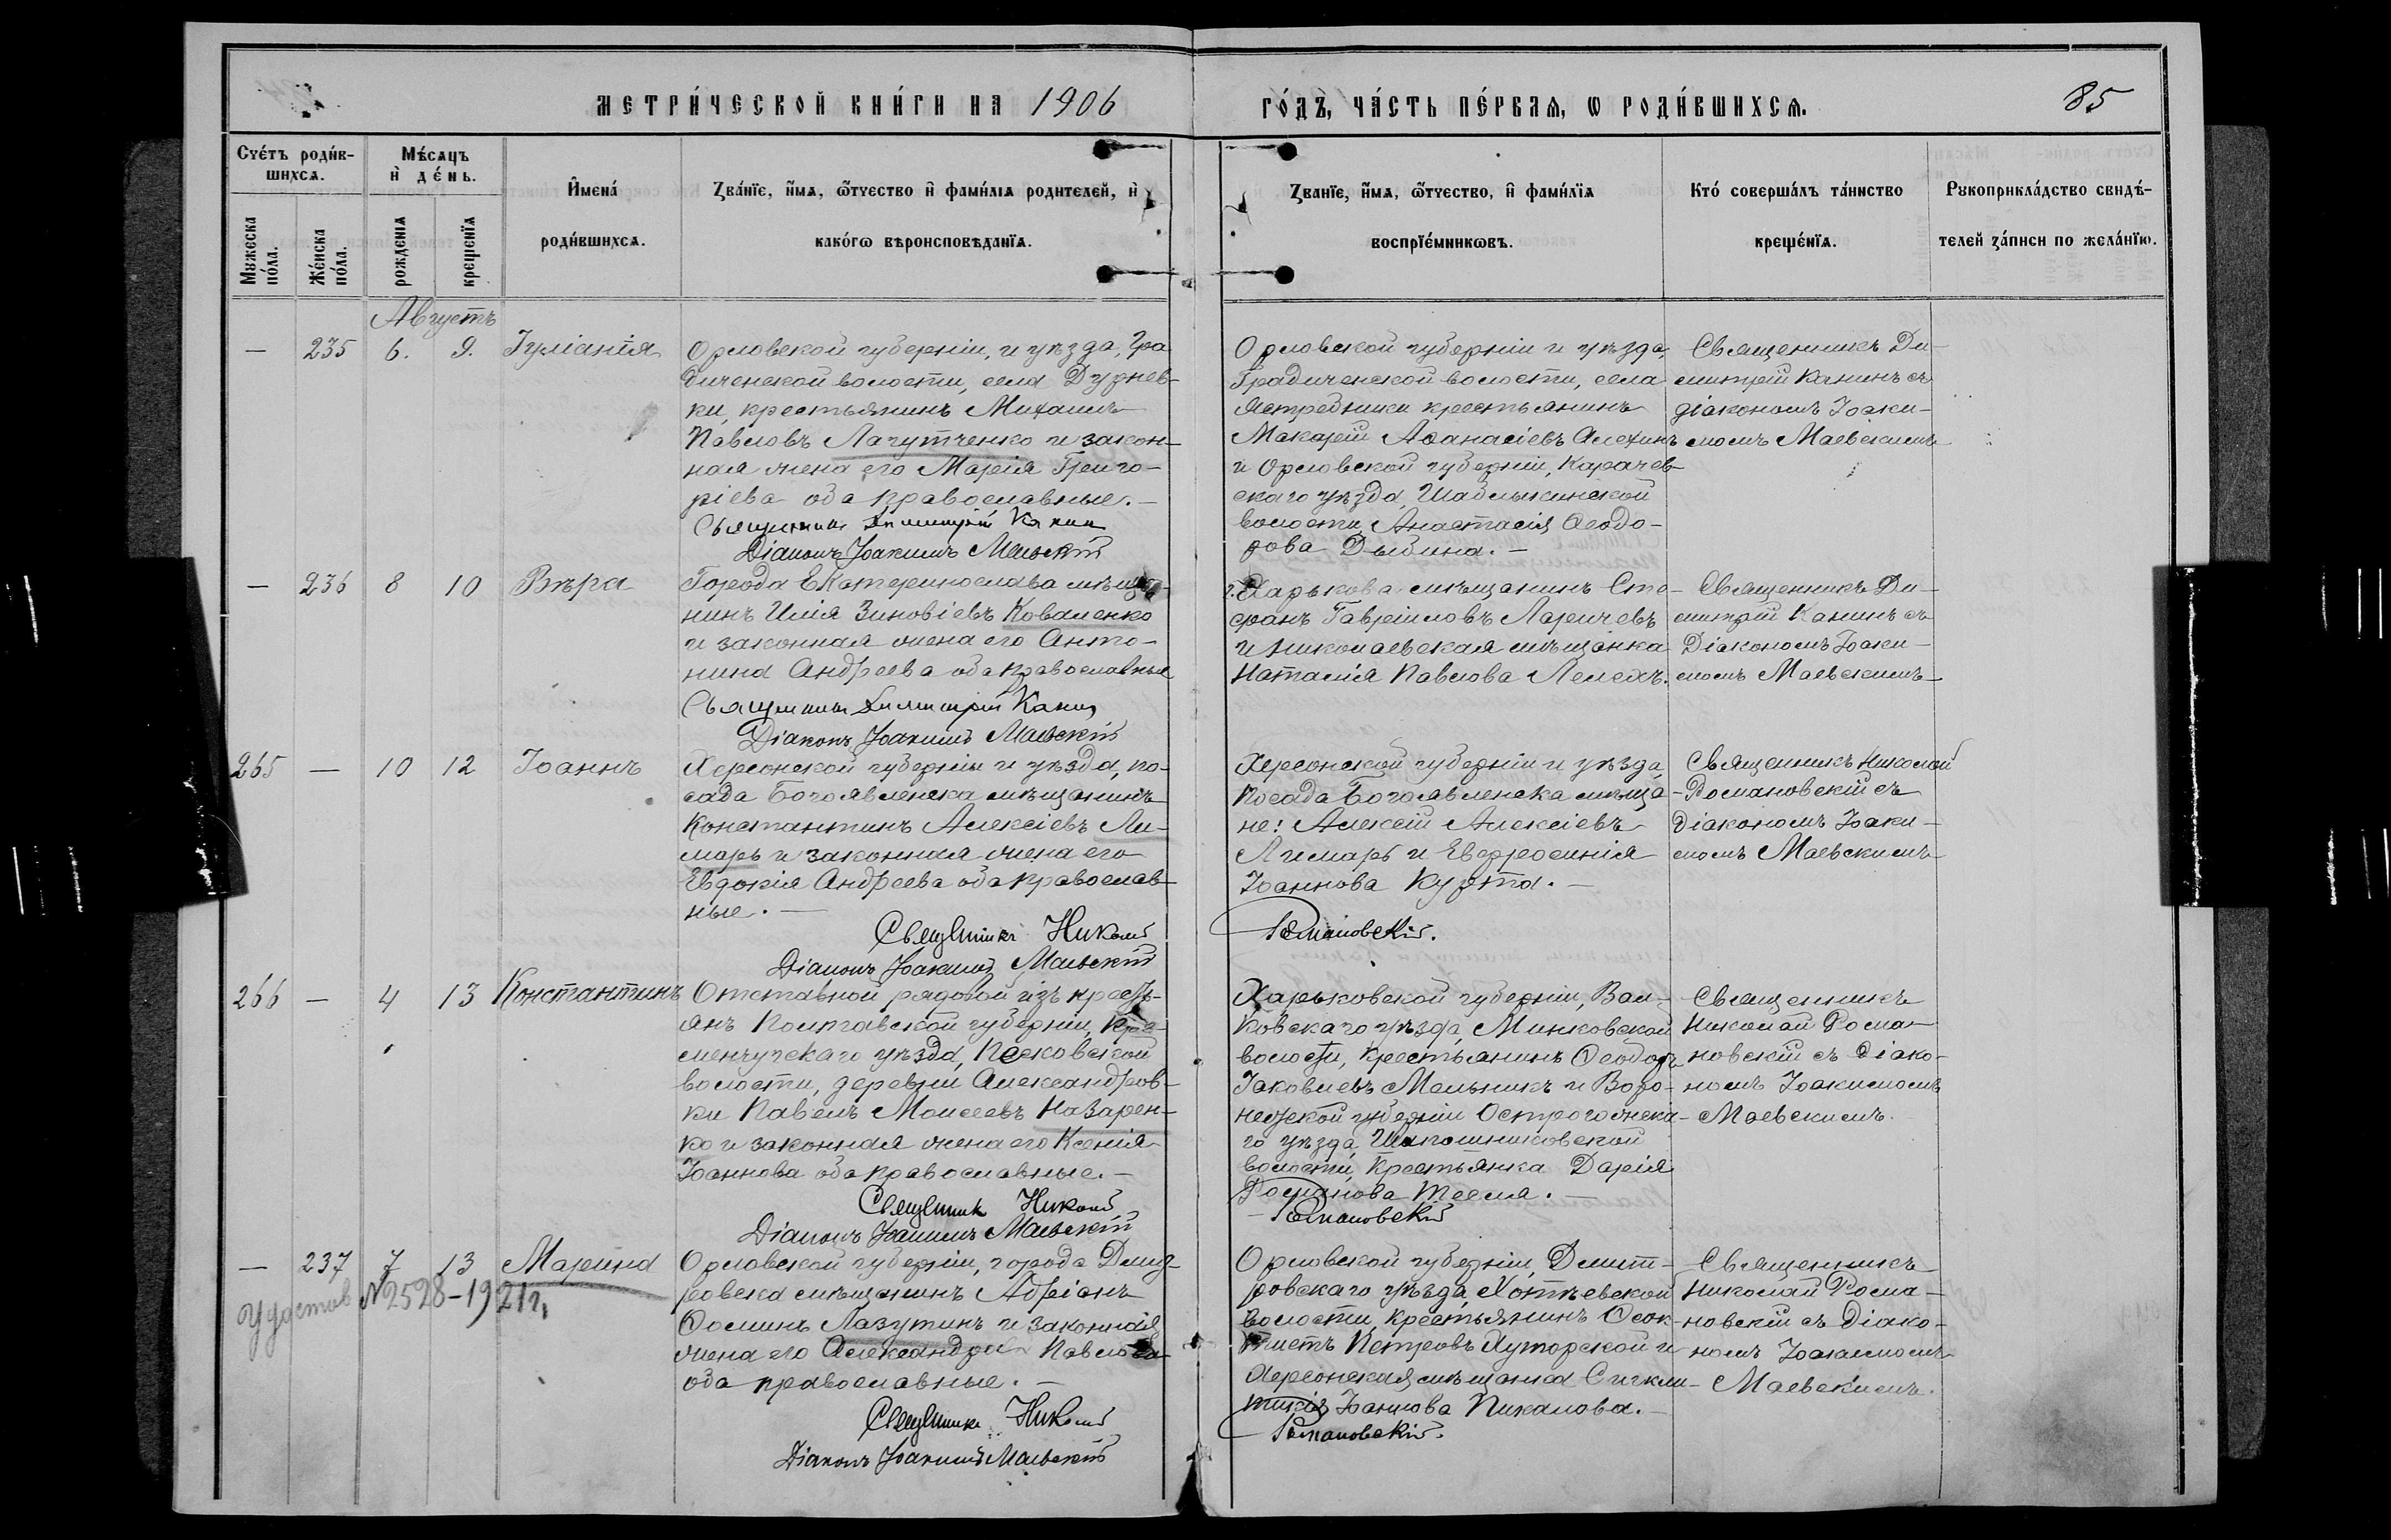 МЕТРИ́ЧЕСКОЙ КНИ́ГИ НА 1906
ГО́ДЪ, ЧА́СТЬ ПЕ́РВАѦ, Ѡ РОДИ́ВШИХСѦ.
85
Счéтъ роди́в-
шихсѧ.
Мꙋжеска
по́ла.
Же́нска
по́ла.
Мѣ́сѧцъ
и҆ де́нь.
рождє́нїѧ
крещє́нїѧ
И҆мена́
роди́вшихсѧ.
Зва́нїе, и҆́мѧ, ѻ҆́тчество и҆ фами́лїѧ родителей, и҆
како́гѡ вѣроисповѣданїѧ.
Зва́нїе, и҆́мѧ, ѻ҆́тчество, и҆ фами́лїѧ
воспрїе́мникѡвъ.
Кто́ соверша́лъ та́инство
креще́нїѧ.
Рꙋкоприкла́дство свидѣ́-
телей за́писи по жела́нїю.
Августъ
— 235 6. 9. Іуліанія
Орловской губерніи, и уѣзда, Гра
диченской волости, села Дурнев-
ки, крестьянинъ Михаилъ
Павловъ Лагутченко и закон-
ная жена его Марія Григо-
ріева оба православные. —
Священникъ Димитрій Канин
Діаконъ Іоакимъ Маевскій
Орловской губерніи и уѣзда,
Градиченской волости, села
Ястребники крестьянинъ
Макарій Аѳанасіевъ Алехинъ
и Орловской губерніи, Карачев-
скаго уѣзда, Шаблыкинской
волости, Анастасія Ѳеодо-
рова Дыбина. —
Священникъ Ди-
митрій Канинъ съ
діакономъ Іоаки-
момъ Маевскимъ
— 236 8 10 Вѣра
Города Екатеринослава мѣща-
нинъ Илія Зиновіевъ Коваленко
и законная жена его Анто-
нина Андреева оба православные
Священникъ Димитрій Канин
Діаконъ Іоакимъ Маевскій
г. Харькова мѣщанинъ Сте-
фанъ Гавріиловъ Ларичевъ
и Николаевская мѣщанка
Наталія Павлова Лелехъ.
Священникъ Ди-
митрій Канинъ съ
Діакономъ Іоаки-
момъ Маевскимъ
265 — 10 12 Іоаннъ
Херсонской губерніи и уѣзда, по-
сада Богоявленска мѣщанинъ
Константинъ Алексіевъ Ли-
марь и законная жена его
Евдокія Андреева оба православ-
ные. —
Священникъ Николай
Діаконъ Іоакимъ Маевскій
Херсонской губерніи и уѣзда,
посада Богоявленска мѣща-
не: Алексій Алексіевъ
Лимарь и Евфросинія
Іоаннова Курта. —
Романовскій.
Священникъ Николай
Романовскій съ
діакономъ Іоаки-
момъ Маевскимъ
266 — 4 13 Константинъ
Отставной рядовой изъ кресть-
янъ Полтавской губерніи, Кре-
менчугскаго уѣзда, Песковской
волости, деревни Александров-
ки Павелъ Моисеевъ Назарен-
ко и законная жена его Ксенія
Іоаннова оба православные. —
Священникъ Николай
Діаконъ Іоакимъ Маевскій
Харьковской губерніи, Вал-
ковскаго уѣзда, Минковской
волости, крестьянинъ Ѳеодоръ
Іаковлевъ Мельникъ и Воро-
нежской губерніи Острогожска-
го уѣзда, Шапошниковской
волости, крестьянка Дарія
Романова Тесля. —
Романовскій
Священникъ
Николай Рома-
новскій съ діако-
номъ Іоакимомъ
Маевскимъ.
— 237 7 13 Марина
Удостов №2528-1921г.
Орловской губерніи, города Дмит
ровска мѣщанинъ Адріанъ
Ѳоминъ Лазутинъ и законная
жена его Александра Павлова
оба православные. —
Священникъ Николай
Діаконъ Іоакимъ Маевскій
Орловской губерніи, Дмит-
ровскаго уѣзда, Хотѣевской
волости, крестьянинъ Ѳеок-
тистъ Петровъ Хуторской и
Херсонская мѣщанка Сигкли-
тикія Іоаннова Пикалова. —
Романовскій.
Священникъ
Николай Рома-
новскій съ діако-
номъ Іоакимомъ
Маевскимъ.